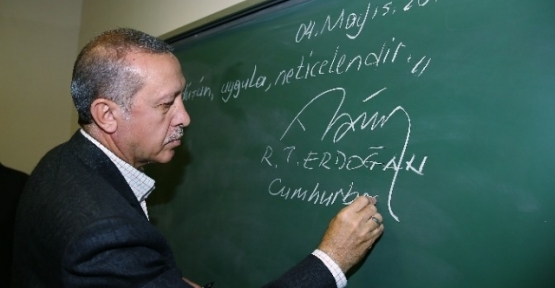 04. Mayıs. 20
uygula, neticelendir."
R. T. ERDOĞAN
Cumhurba